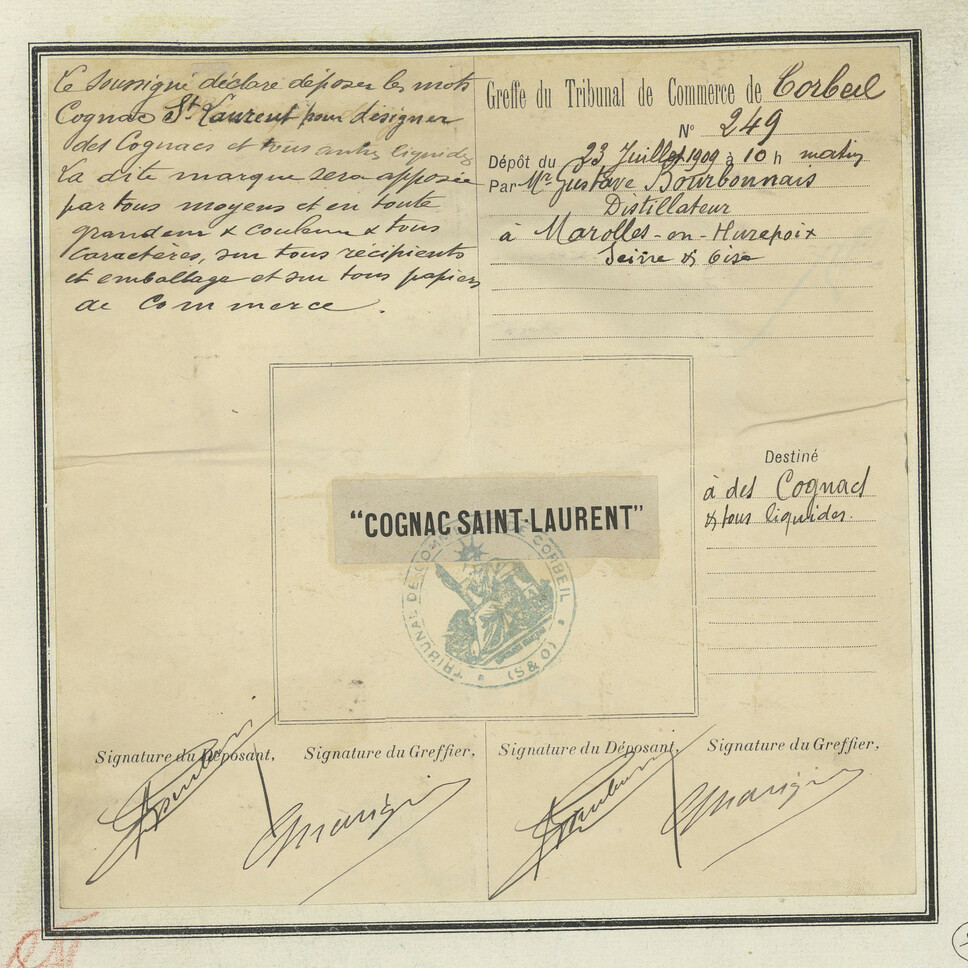 Le soussigné déclare déposer les mots
Cognac St Laurent pour désigner
des Cognacs et tous autres liquides
La dite marque sera apposée
par tous moyens et en toute
grandeur & couleur & tous
caractères, sur tous récipients
et emballage et sur tous papiers
de Commerce.
Greffe du Tribunal de Commerce de Corbeil
N° 249
Dépôt du 23 Juillet 1909 à 10 h matin
Par Mr Gustave Bourbonnais
Distillateur
à Marolles-en-Hurepoix
Seine & Oise
Destiné
à des Cognacs
& tous liquides.
"COGNAC SAINT-LAURENT"
TRIBUNAL DE COMMERCE DE CORBEIL (S & O)
Signature du Déposant, Signature du Greffier, Signature du Déposant, Signature du Greffier,